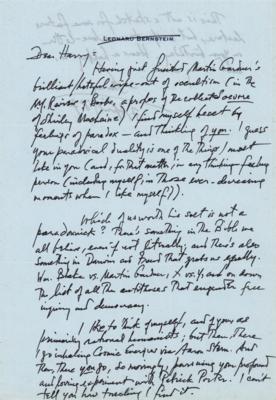 LEONARD BERNSTEIN
Dear Harry =
Having just finished Martin Gardner's
brilliant, hateful wipe-out of occultism (in the
NY Review of Books, apropos of the collected oeuvre
of Shirley MacLaine) I find myself beset by
feelings of paradox — and thinking of you. I guess
your paradoxical duality is one of the things I most
like in you (and, for that matter, in any thinking feeling
person (including myself, in those ever-decreasing
moments when I like myself)).
Which of us worth his salt is not a
There's something in the Bible we
all believe, even if not literally; and there's also
something in Darwin and Freud that grabs us equally.
Wm. Blake vs. Martin Gardner, X vs. Y, and on down
the list of all the antitheses that engender free
inquiry and democracy.
I like to think of myself, and of you, as
primarily rational humanists; but then, there
I go inhaling Cosmic Energies via Aaron Stern. And
then, there you go, so movingly, pursuing your profound
and loving experiment with Patrick Porter. I can't
tell you how touching I find it.